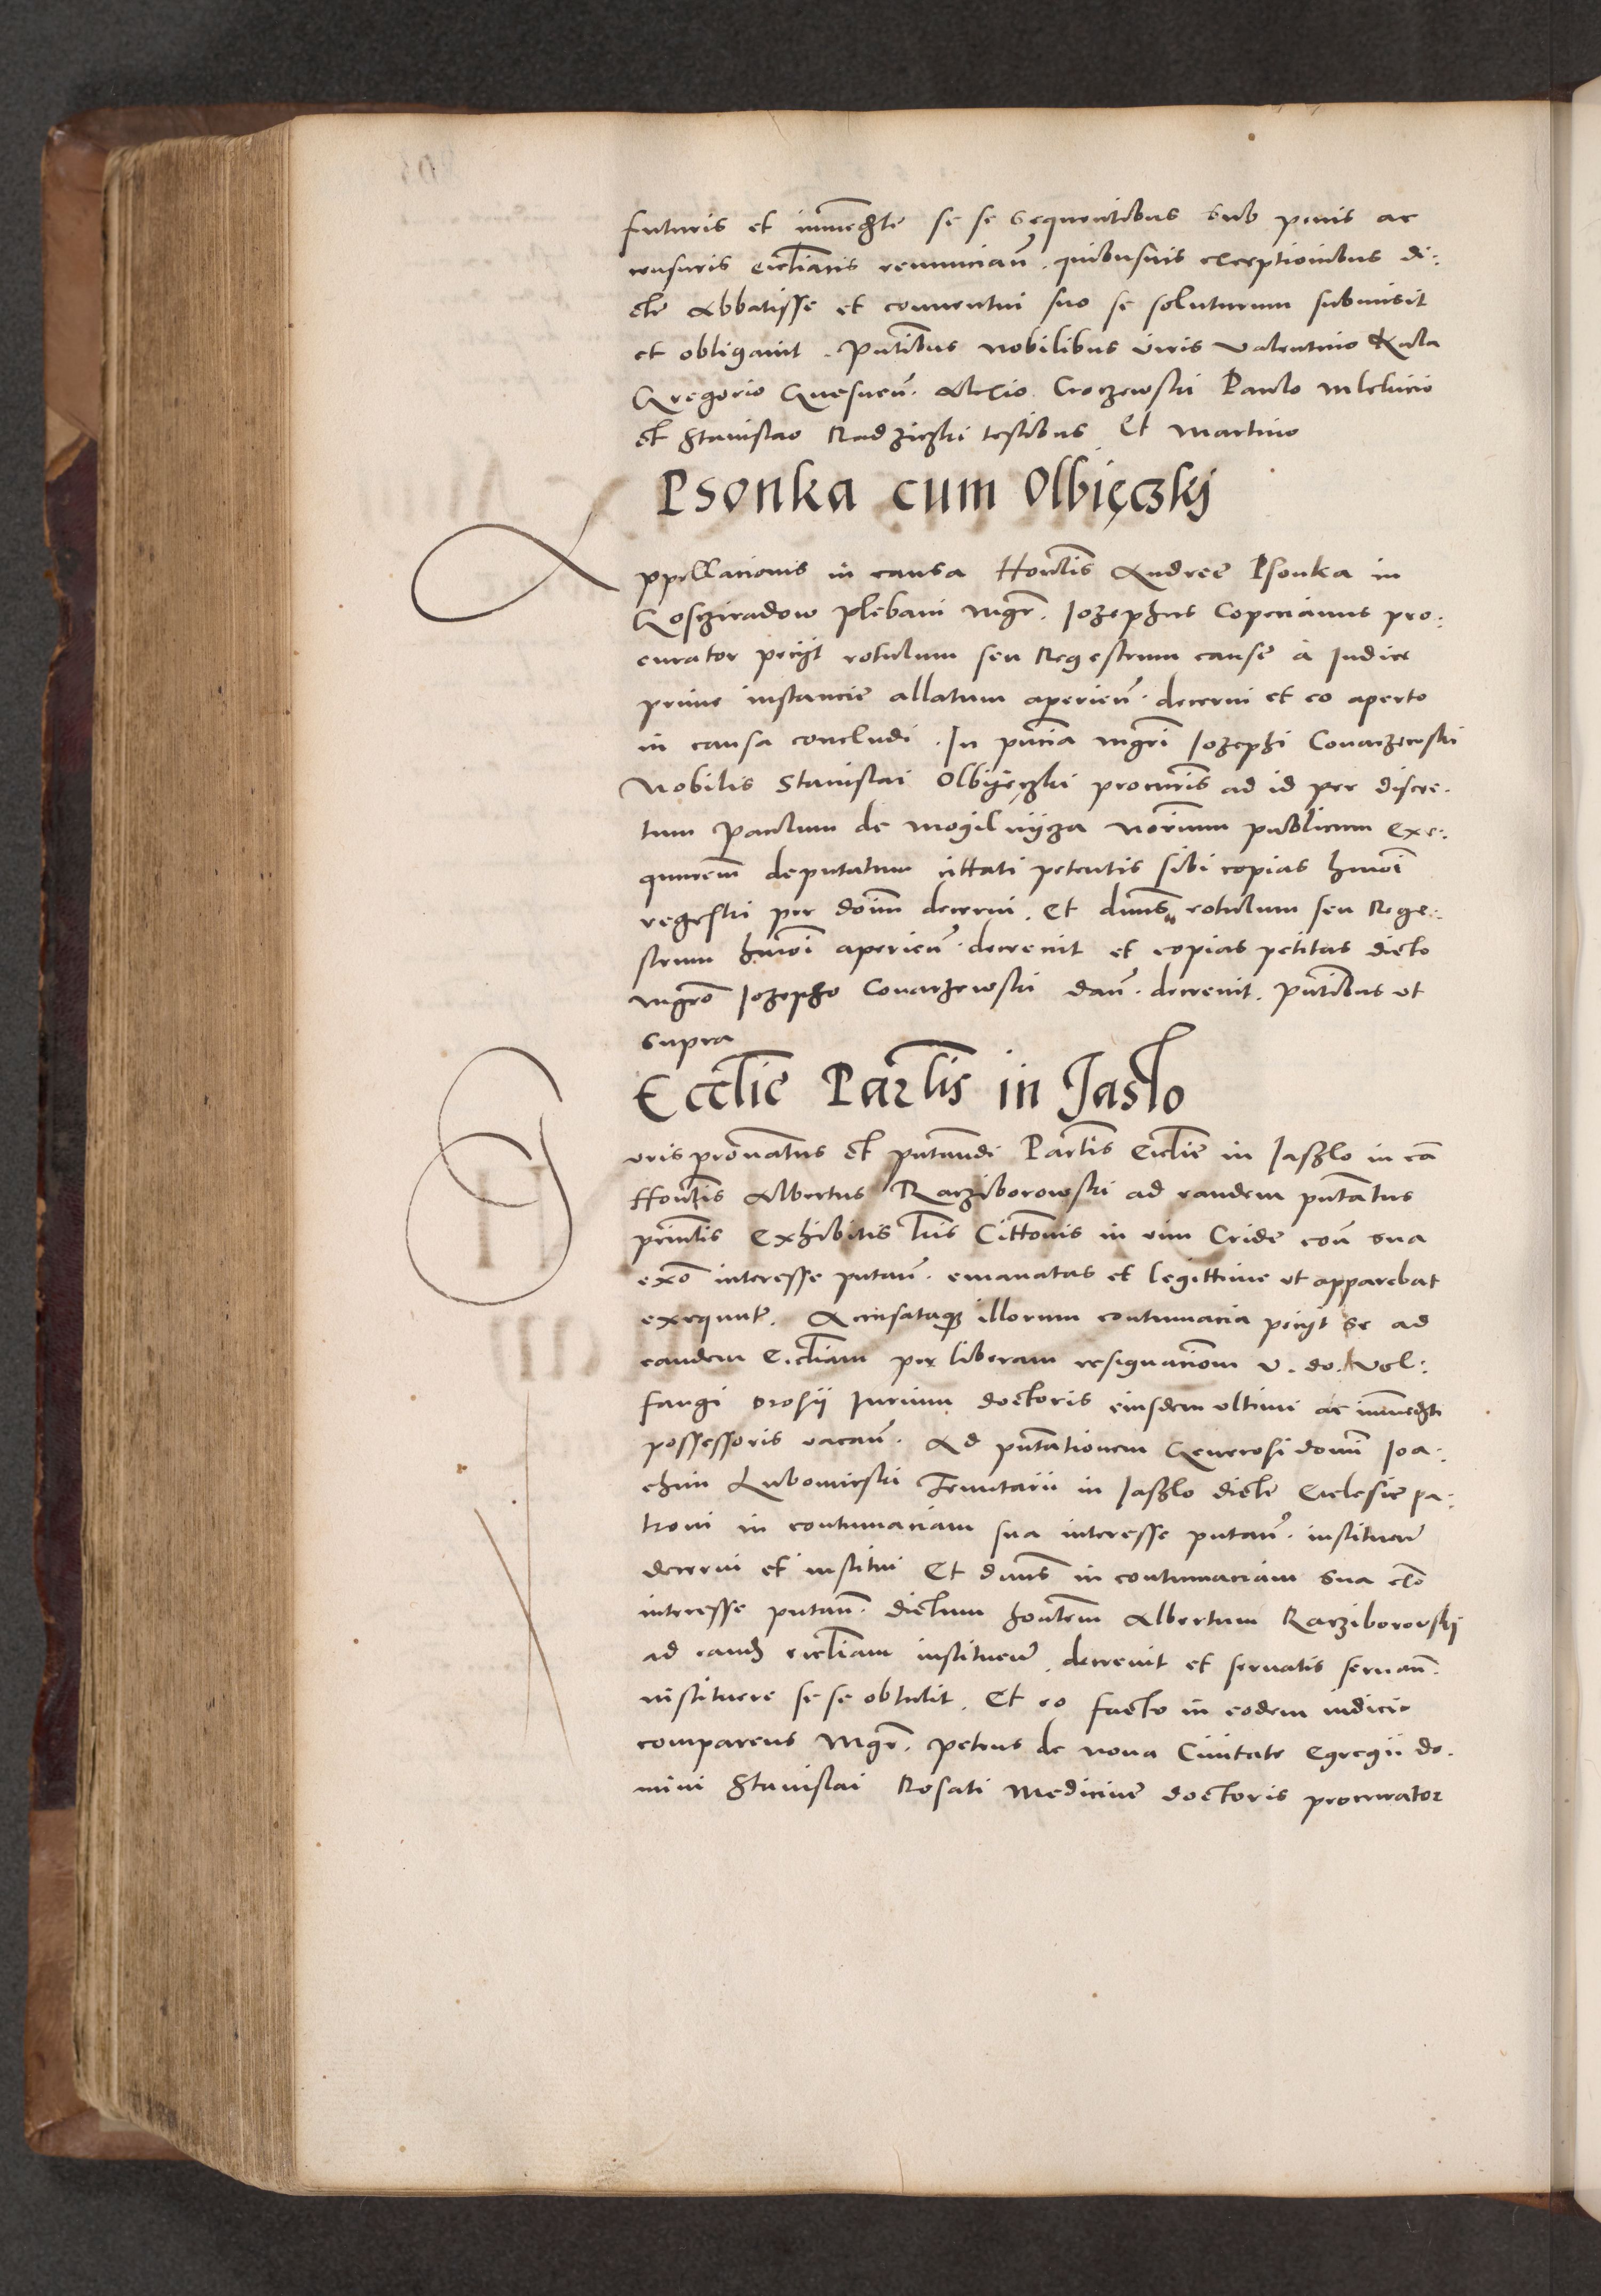 futuris et immedte se se sequentibus sub penis ac
censuris ecclianis renuncian. quibusuis exceptionibus di:
cte Abbatisse et conuentui suo se soluturum submisit
et obligauit. Pntibus nobilibus viris Valentino Kula
Gregorio Alexio Croczewski Paulo
et Stanislao Radziczki testibus Et Martino
Psonka cum Olbięczkj
Appellacionis in causa Honlis Andree Psonka in
Goscziradow plebani mgr. Iozephus Copecianus pro:
curator peciit rotulum seu Regestrum cause a Iudice
prime instancie allatum aperien. decerni et eo aperto
in causa concludi. In pncia mgri Iozephi Conarzewski
Nobilis Stanislai Olbijęczki procuris ad id per discre.
tum Paulum de mogilnijcza norium publicum exe:
quutem deputatum cittati petentis sibi copias hmoi
regestri per doim decerni. Et dnus rotulum seu Rege:
strum hmoi aperien. decreuit et copias petitas dicto
mgro Iozepho Conarzewski dan. decreuit. Pntibus ut
supra
Ecclie Parlis in Jaslo
Juris pronatus et pntandi Parlis Ecclie in Iaszlo in ca
Honlis Albertus Racziborowski ad eandem pntatus
principlis exhibitis lris Cittonis in vim Cride coun sua
exo interesse putan. emanatas et legittime ut apparebat
exequut. Accusataque illorum contumacia peciit se ad
eandem Eccliam per liberam resignaciom v. do. Vol:
fangi Orosii Iurium doctoris eiusdem ultimi ac immedti
possessoris vacan. Ad pntationem Generosi domi Ioa:
chim Lubomirski Tenutarii in Iaszlo dicte Ecclesie pa:
troni in contumaciam sua interesse putan. instituen
decerni et institui Et dnus in contumaciam sua
interesse putan. dictum honlem Albertum Racziborovskj
ad eand eccliam instituen. decreuit et seruatis seruan.
instituere se se obtulit. Et eo facto in eodem iudicio
comparens Mgr. Petrus de noua Ciuitate Egregii do.
mini Stanislai Rosati Medicine doctoris procurator